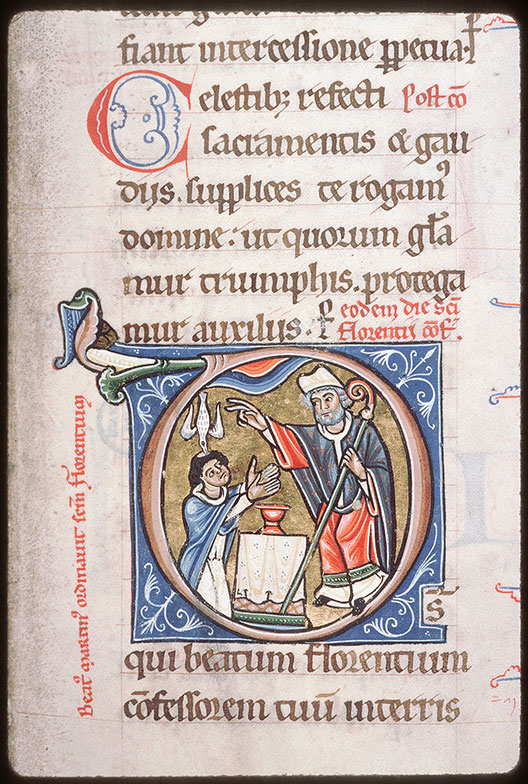 fiant intercessione ppetua. p
Celestib; refecti Post co
sacramentis & gau
diis. supplices te rogam9
domine. ut quorum gl̄a
mur triumphis. protega
mur auxiliis. eodem die sc̄i
Florentii co͞f.
DS
qui beatum florentium
co͞fessorem tuū interris
Beat9 martin9 ordinavit scm̄ Florentium